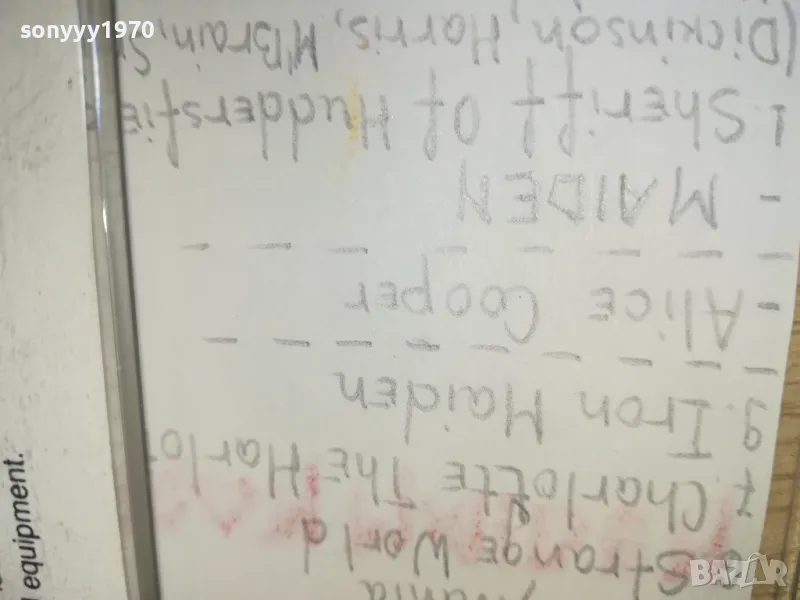 sonyyy1970
Strange World
7. Charlotte The Harlo
9. Iron Maiden
- Alice Cooper
- MAIDEN
1. Sheriff Of Huddersfie
(Dickinson, Harris, McBrain, S
equipment.
BAZAR